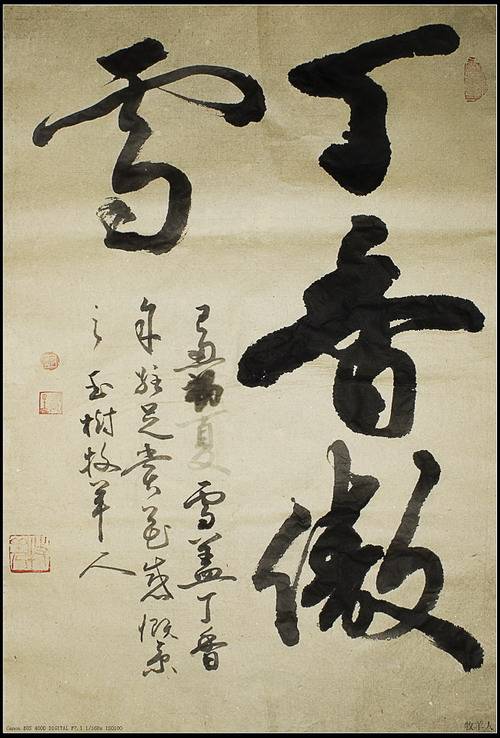 丁香傲
雪
己丑初夏 雪盖丁香
驻足赏花感慨系
之 玉树牧羊人
Canon EOS 400D DIGITAL F7.1 1/160s ISO100
牧羊人